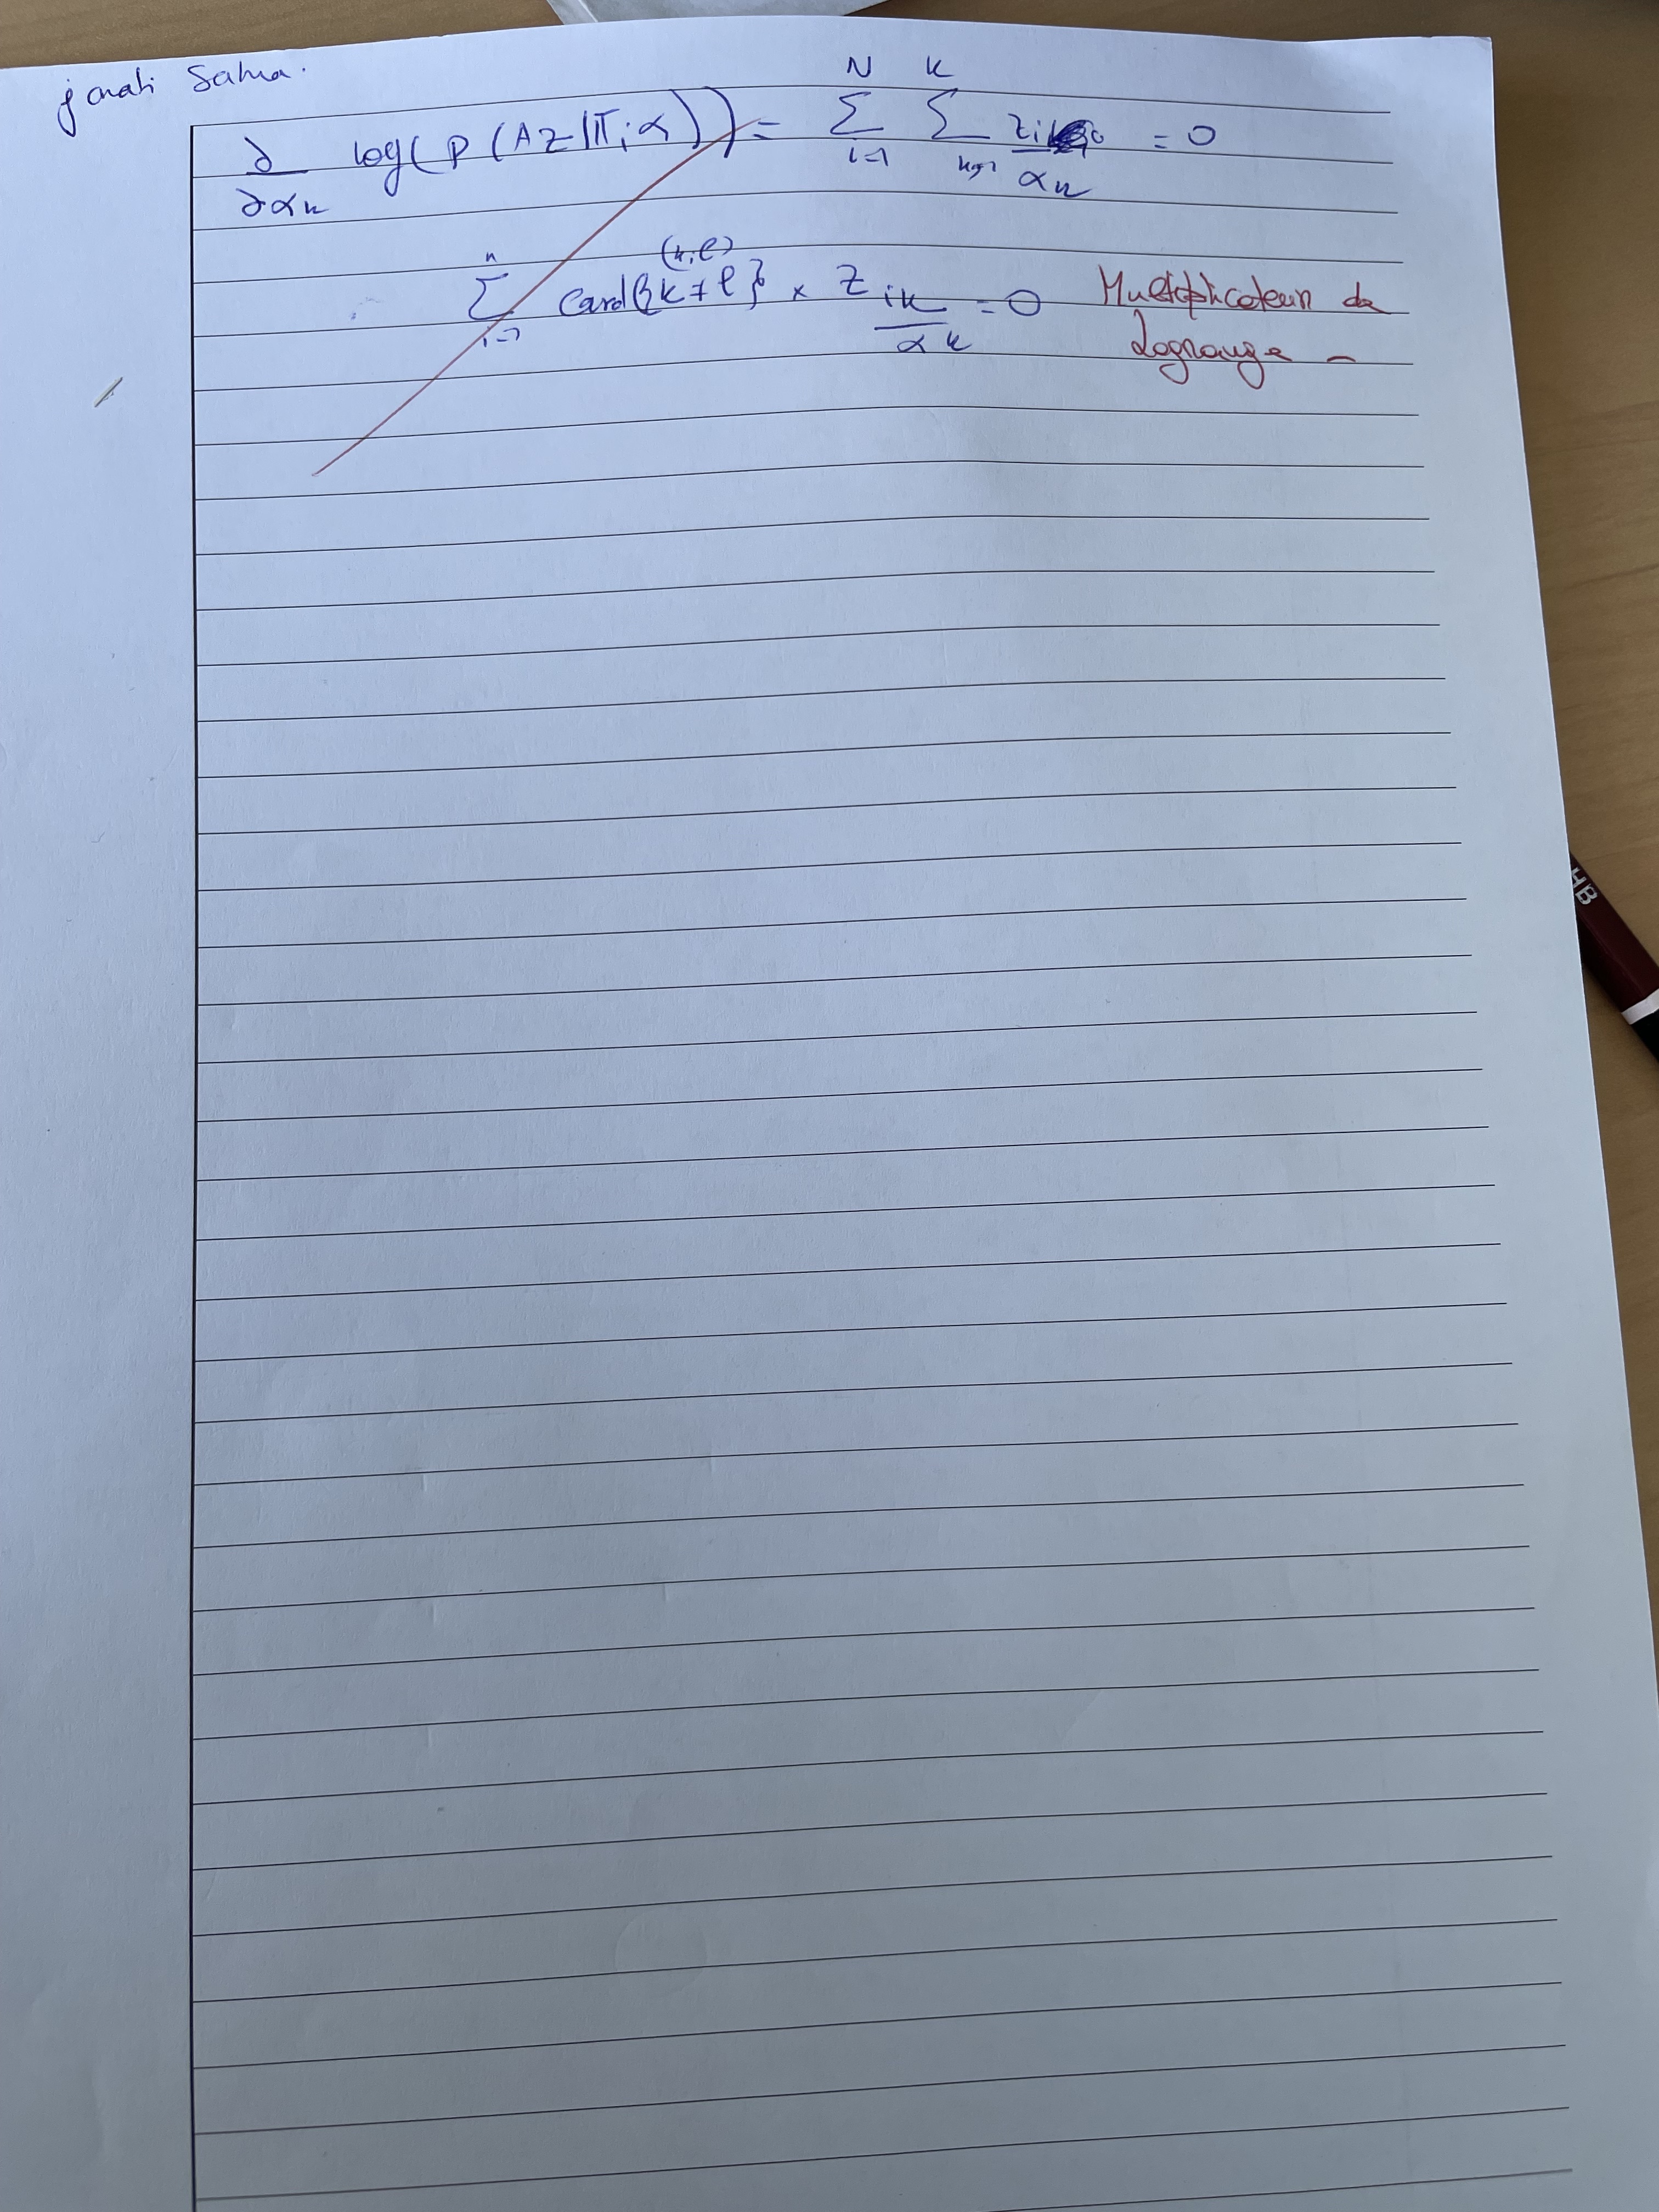 Salma.
∂/∂αk log(P(AZ|Π;α)) = N∑i=1 K∑k=1 zik/αk = 0
n∑i=1 Card{k≠l}(k,l) × Zik/αk = 0 Multiplicateur de
Lagrange -
HB